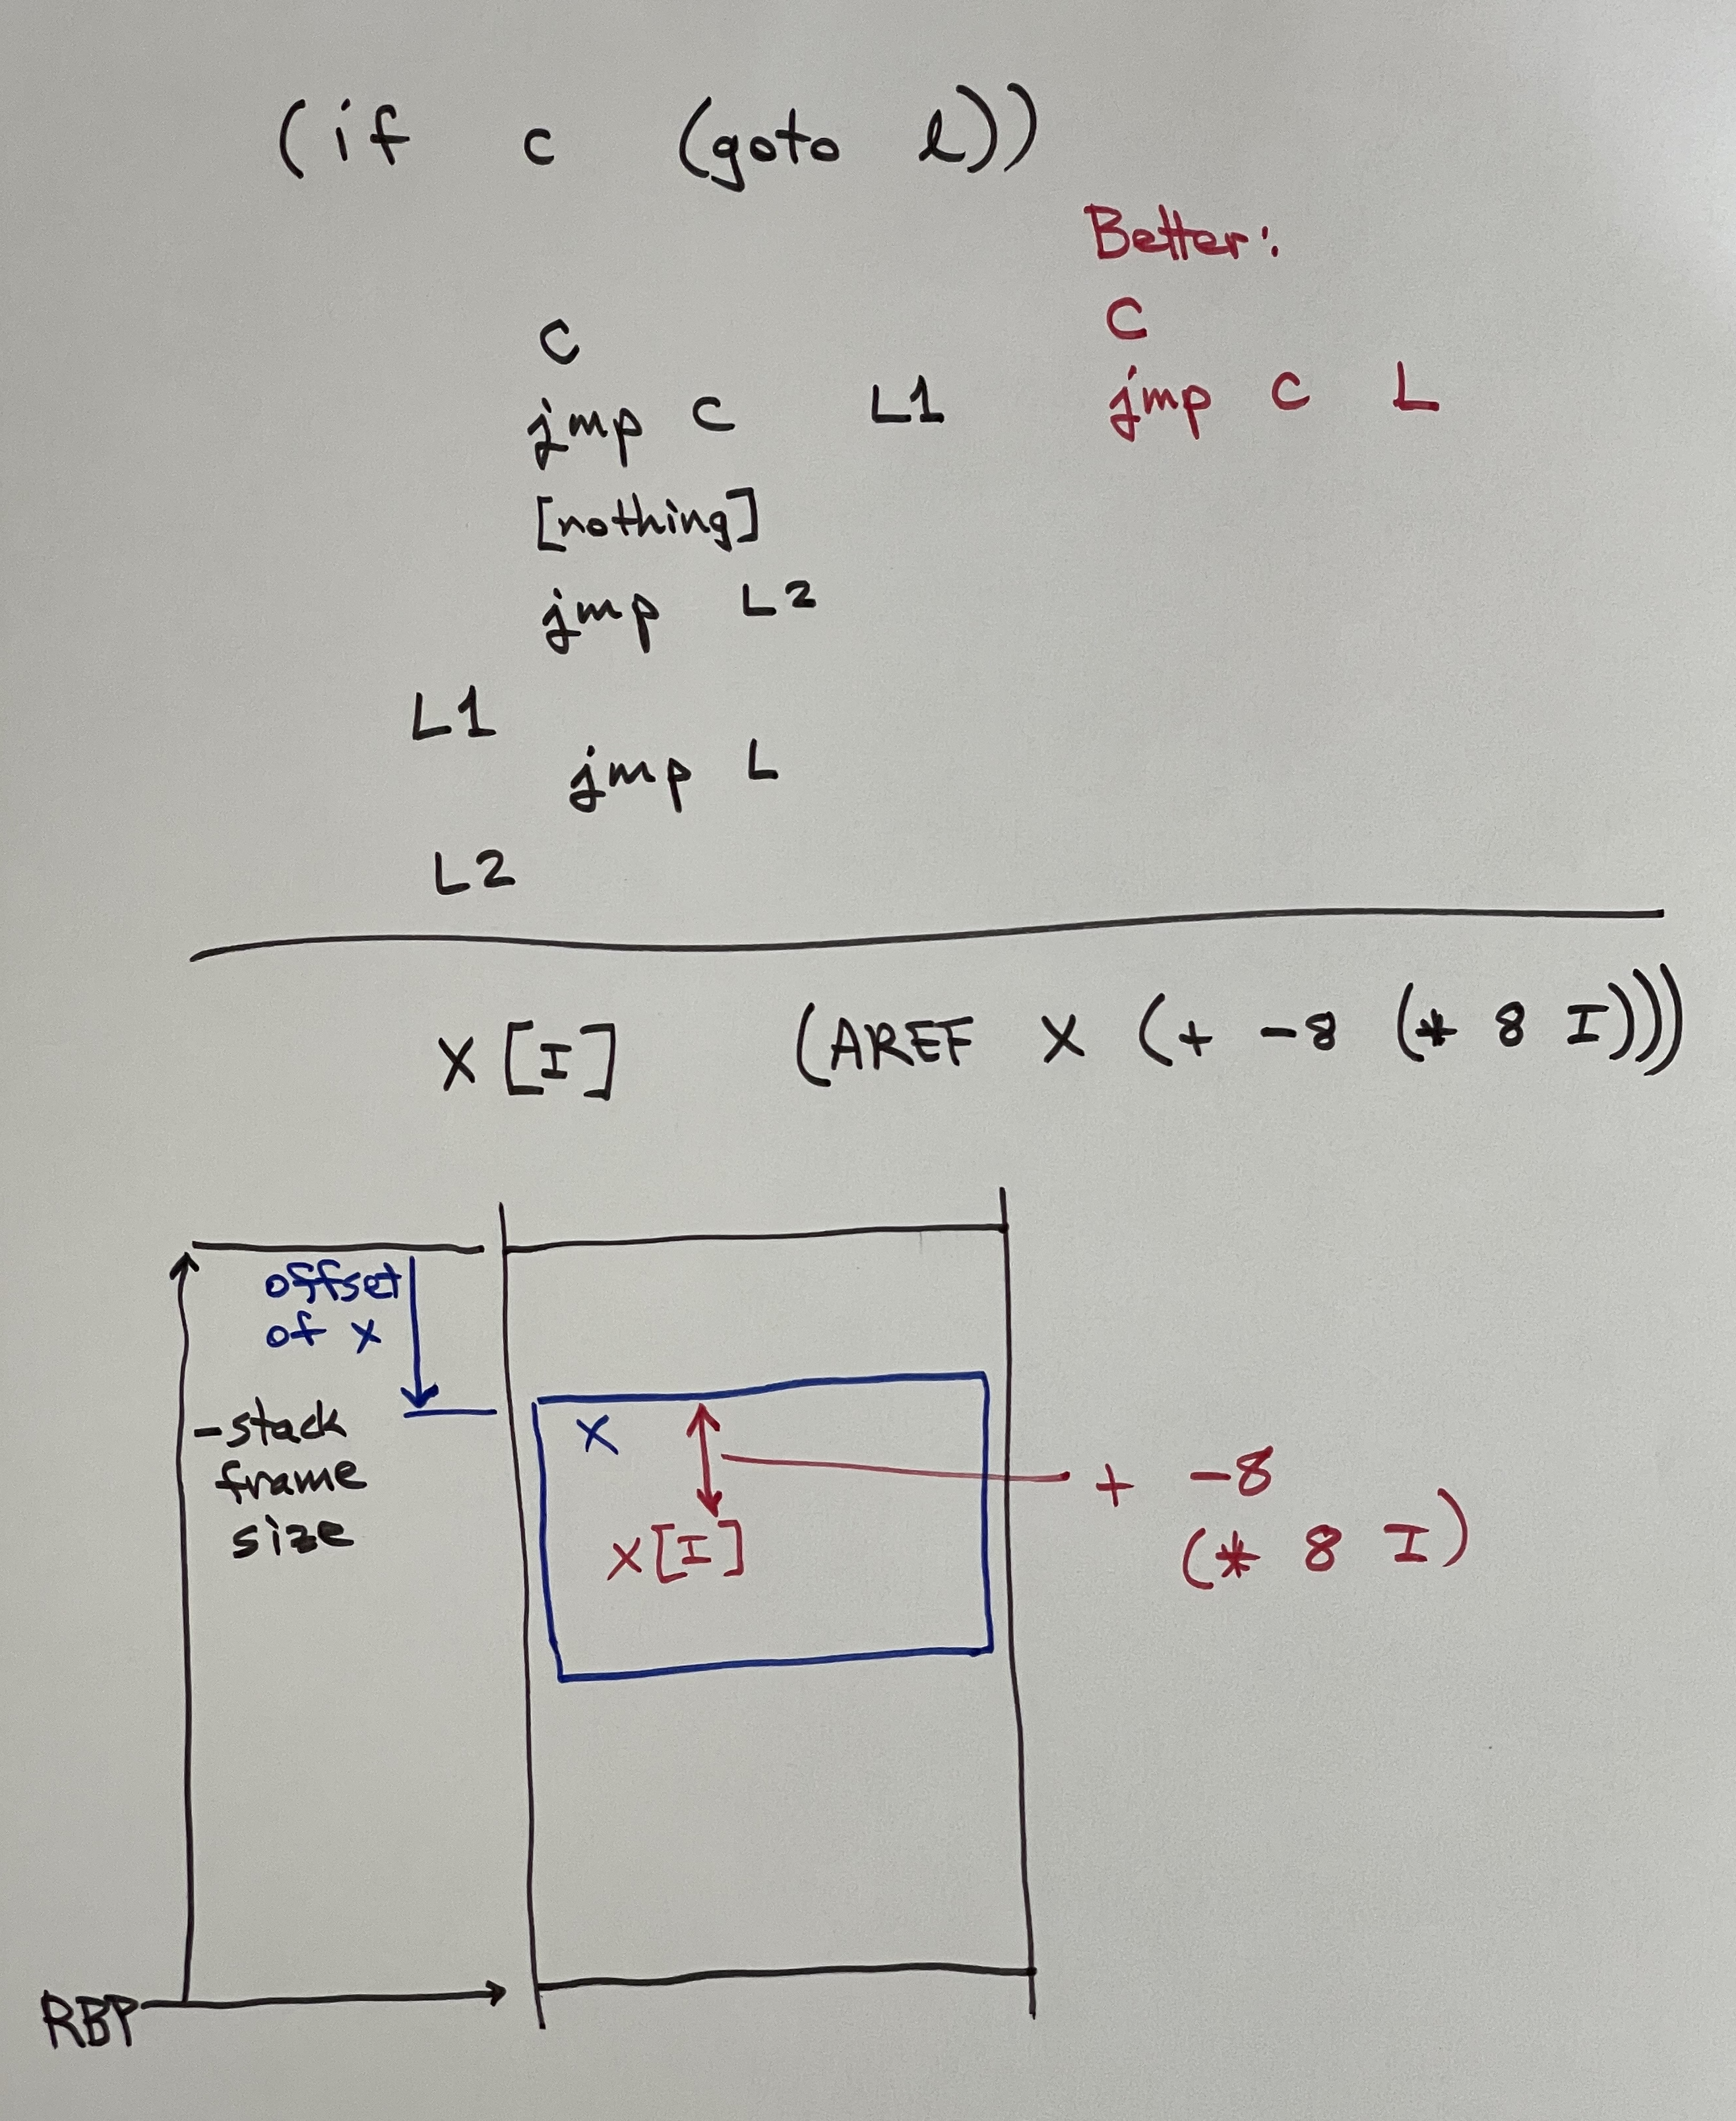 (if c (goto l))
Better:
C
jmp C L
C
jmp C L1
[nothing]
jmp L2
L1
jmp L
L2
X[I] (AREF X (+ -8 (* 8 I)))
offset
of x
-stack
frame
size
X
X[I]
+ -8
(* 8 I)
RBP